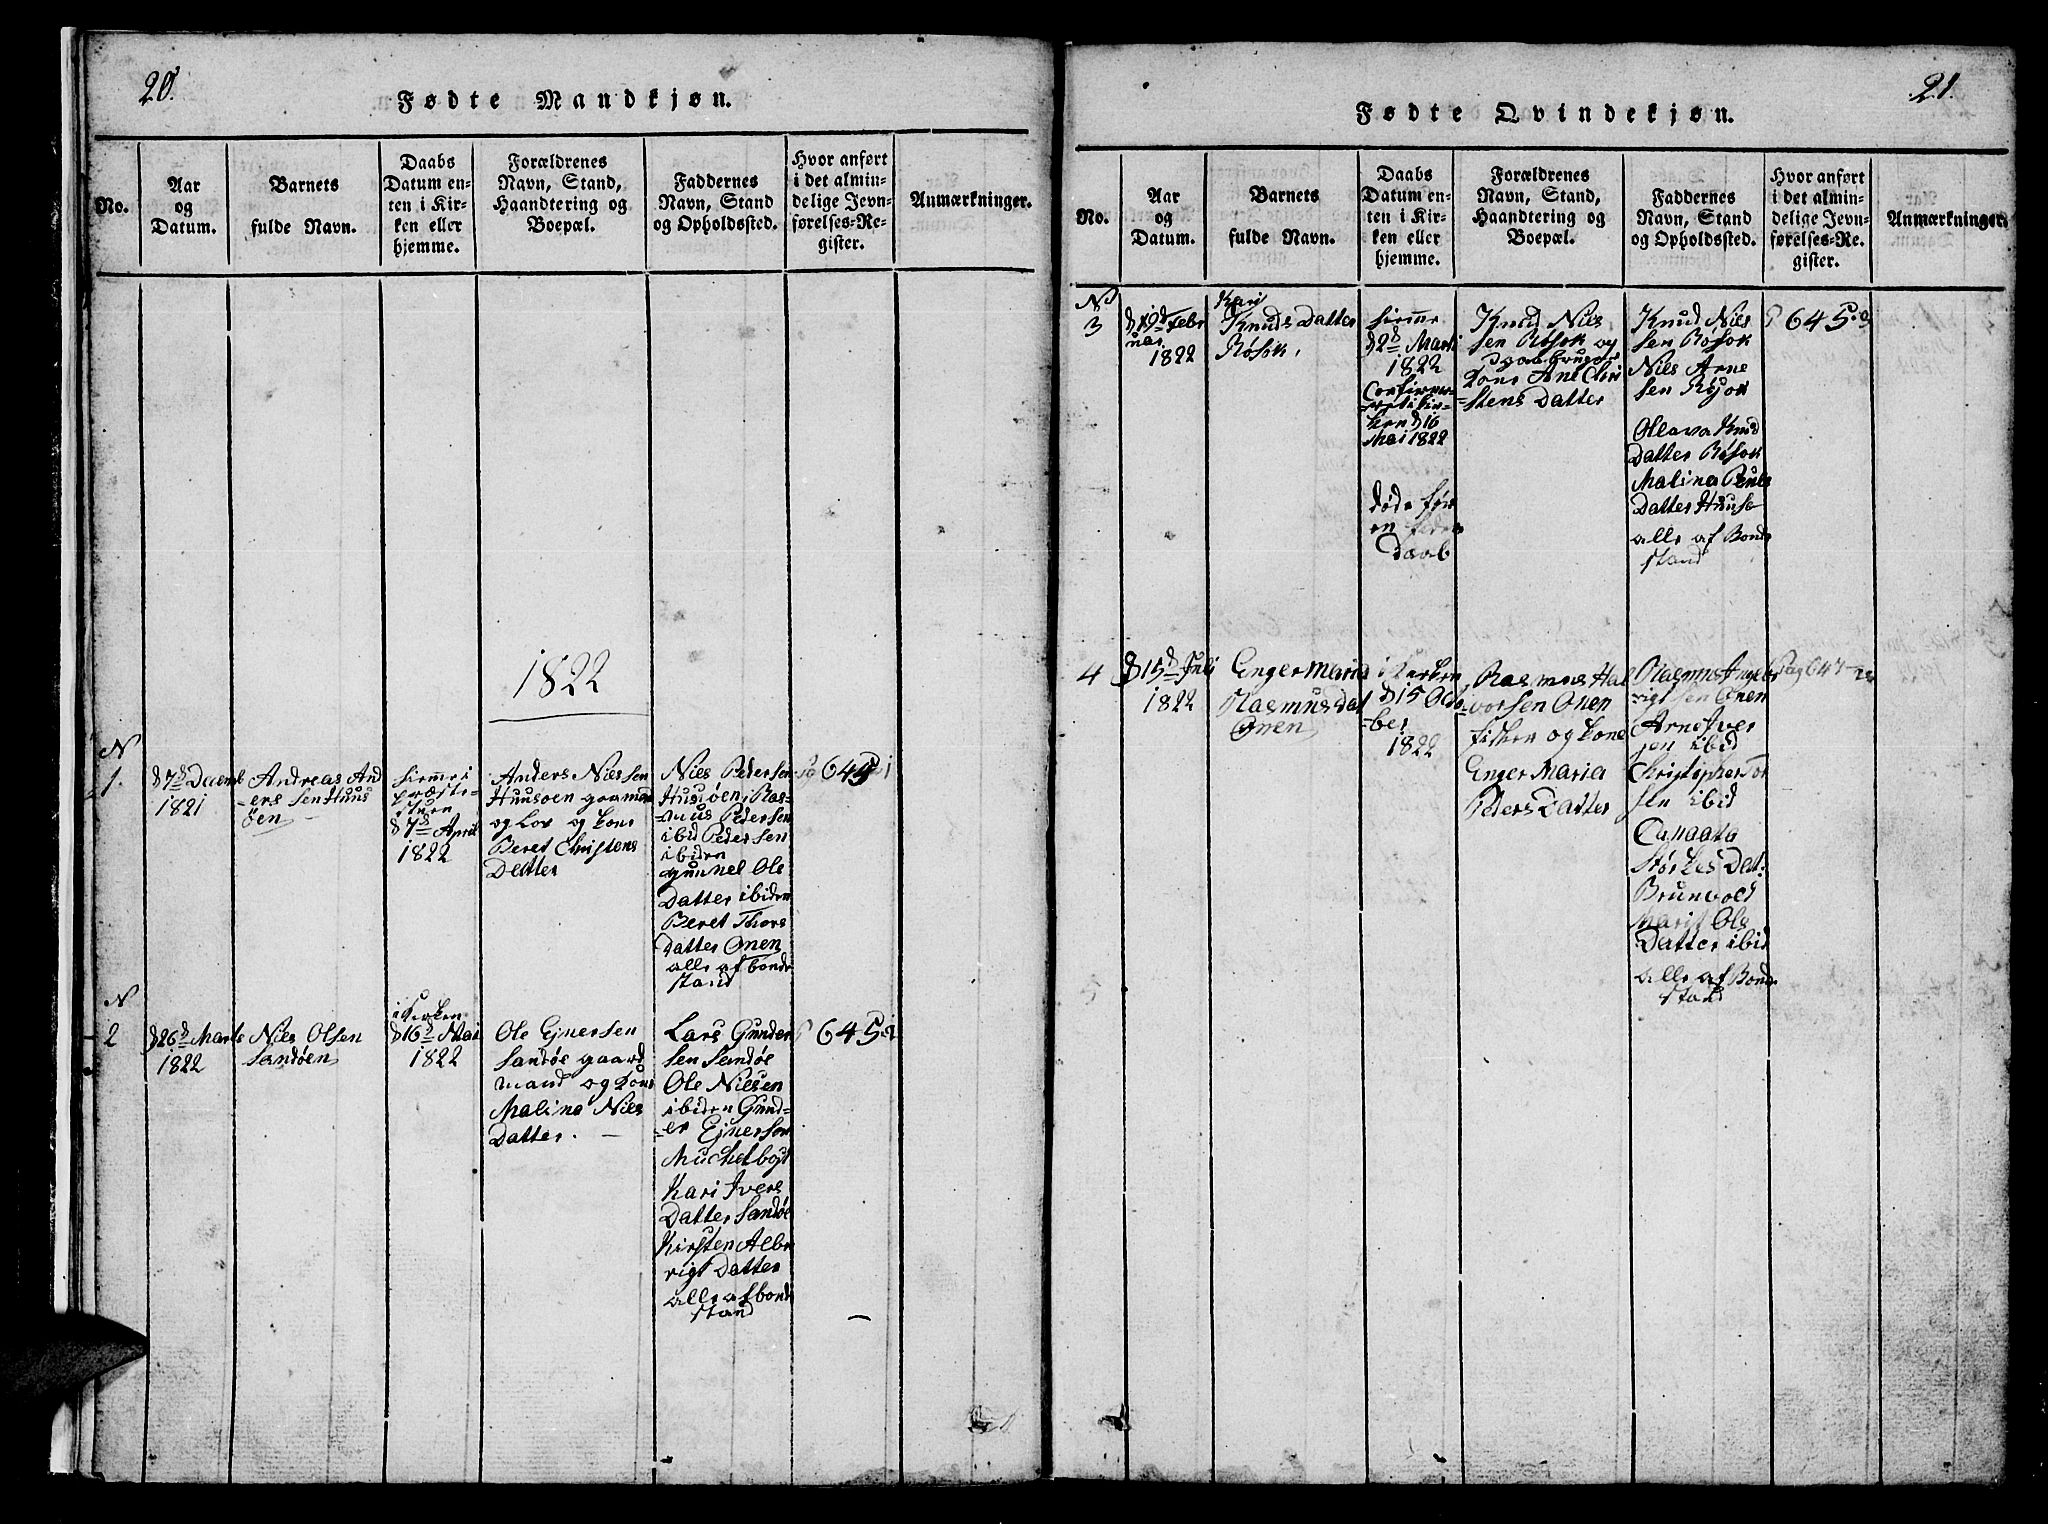 20.
Fødte Mandkjøn.
No.
Aar
og
Datum.
Barnets
fulde Navn.
Daabs
Datum en-
ten i Kir-
ken eller
hjemme.
Forældrenes
Navn, Stand,
Haandtering og
Boepæl.
Faddernes
Navn, Stand
og Opholdssted.
Hvor anført
i det almin-
delige Jevn-
førelses-Re-
gister.
Anmærkninger.
1822
N
1.
d 7d Decemb
1821
Andreas And
-ers Sen Huus
öen
hiemme i
præste-
stuen
d 7d April
1822
Anders Nielsen
Huusöen gaarma
og Lov og kone
Beret Christens
Datter
Niels Pedersen
Huusöen, Ras-
-mus Pedersen
ibid Pedersen
ibiden
gunnel Ole
Datter ibiden
Beret Thors
Datter Onen
alle af bonde
stand
645
N
2
d 26d Marts
1822
Niels Olsen
Sandöen
i Kirken
d 16d Mai
1822
Ole Ejnersen
Sandöe gaard
mand og kone
Malina Niels
Datter.
Lars Gunder
sen Sandöe
Ole Nielsen
ibiden Gund-
-er Ejnersen
Muchelbost
Kari Ivers
Datter Sandöe
Kirsten Alb
rigt Datter
alle af bonde
stand
645
21.
Fødte Qvindekjøn.
No.
Aar
og
Datum.
Barnets
fulde Navn.
Daabs
Datum en-
ten i Kir-
ken eller
hjemme.
Forældrenes
Navn, Stand,
Haandtering og
Boepæl.
Faddernes
Navn, Stand
og Opholdssted.
Hvor anført
i det almin-
delige Jevn-
førelses-Re-
gister.
Anmærkninger.
No
3
d 19d Febr
uar
1822
Kari
Knuds Datter
Rösok.
hiemme
d 2d Marti
1822
Confirme-
-ret i Kir-
ken d 16
Mai 1822
döde för
en
daab
Knud Niel
sen Rösok og
kone Ane Chri
-stens Datter
Knud Niel
sen Rösok
Niels Arne
sen Rösok
Oleava Knud
Datter Rösok
Malina Peuls
Datter Huuse
alle af Bonde
stand
645
4
d 15d Juli
1822
Enger Maria
Rasmus Dat
Onen
i Kirken
d 15 Octo
-ber
1822
Rasmus Hal
vorsen Onen
fisker og kone
Enger Maria
Peders Datter
Rasmus Ingeb
rigtsen Onen
Arne Iver
sen ibid
Christopherson
sen ibid
Störkes Dat.
Brunvold
Marit Ols
Datter ibid
alle af Bonde
stand
Pag 647